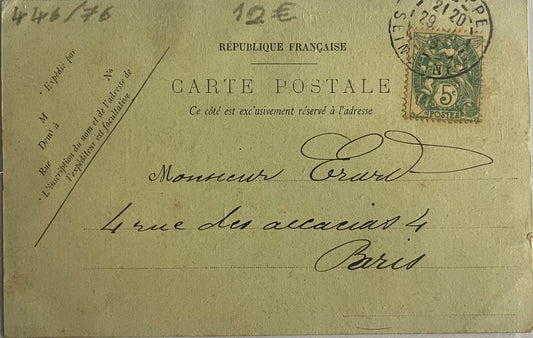 446/76
12€
RÉPUBLIQUE FRANÇAISE
CARTE POSTALE
Ce côté est exclusivement réservé à l'adresse
Expédié par
M
No
Demt à
Rue
L'inscription du nom et de l'adresse de
l'expéditeur est facultative
PPE
21 20
29
SEINE
5c
POSTES
Monsieur Erard
4 rue des accacias 4
Paris